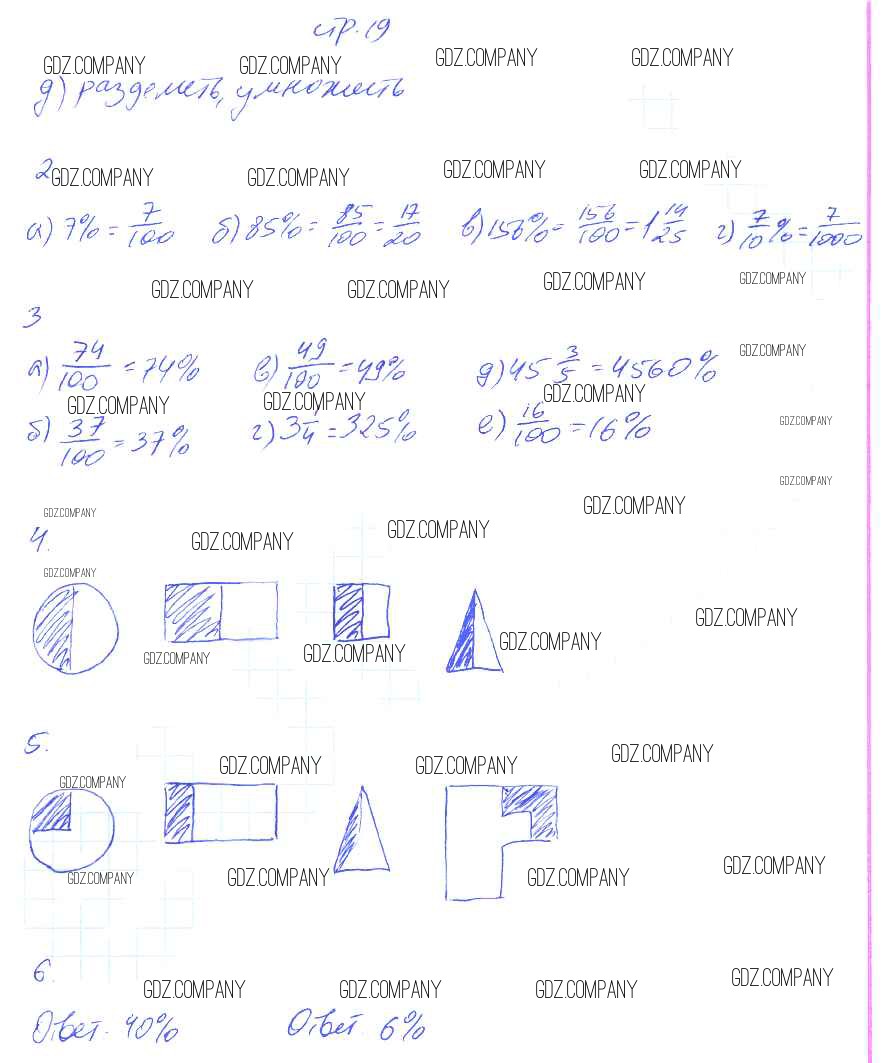 стр. 19
GDZ.COMPANY GDZ.COMPANY GDZ.COMPANY GDZ.COMPANY
д) разделить, умножить
2 GDZ.COMPANY GDZ.COMPANY GDZ.COMPANY GDZ.COMPANY
а) 7% = 7/100 б) 85% = 85/100 = 17/20 в) 156% = 156/100 = 1 14/25 г) 7/10 % = 7/1000
GDZ.COMPANY GDZ.COMPANY GDZ.COMPANY GDZ.COMPANY
3
GDZ.COMPANY
а) 74/100 = 74% в) 49/100 = 49% д) 45 3/5 = 4560%
GDZ.COMPANY GDZ.COMPANY GDZ.COMPANY
б) 37/100 = 37% г) 3 1/4 = 325% е) 16/100 = 16% GDZ.COMPANY
GDZ.COMPANY
GDZ.COMPANY GDZ.COMPANY
4. GDZ.COMPANY GDZ.COMPANY
GDZ.COMPANY
GDZ.COMPANY
GDZ.COMPANY GDZ.COMPANY GDZ.COMPANY
5. GDZ.COMPANY
GDZ.COMPANY GDZ.COMPANY GDZ.COMPANY
GDZ.COMPANY GDZ.COMPANY GDZ.COMPANY GDZ.COMPANY
6.
GDZ.COMPANY GDZ.COMPANY GDZ.COMPANY GDZ.COMPANY
Ответ. 40% Ответ. 6%